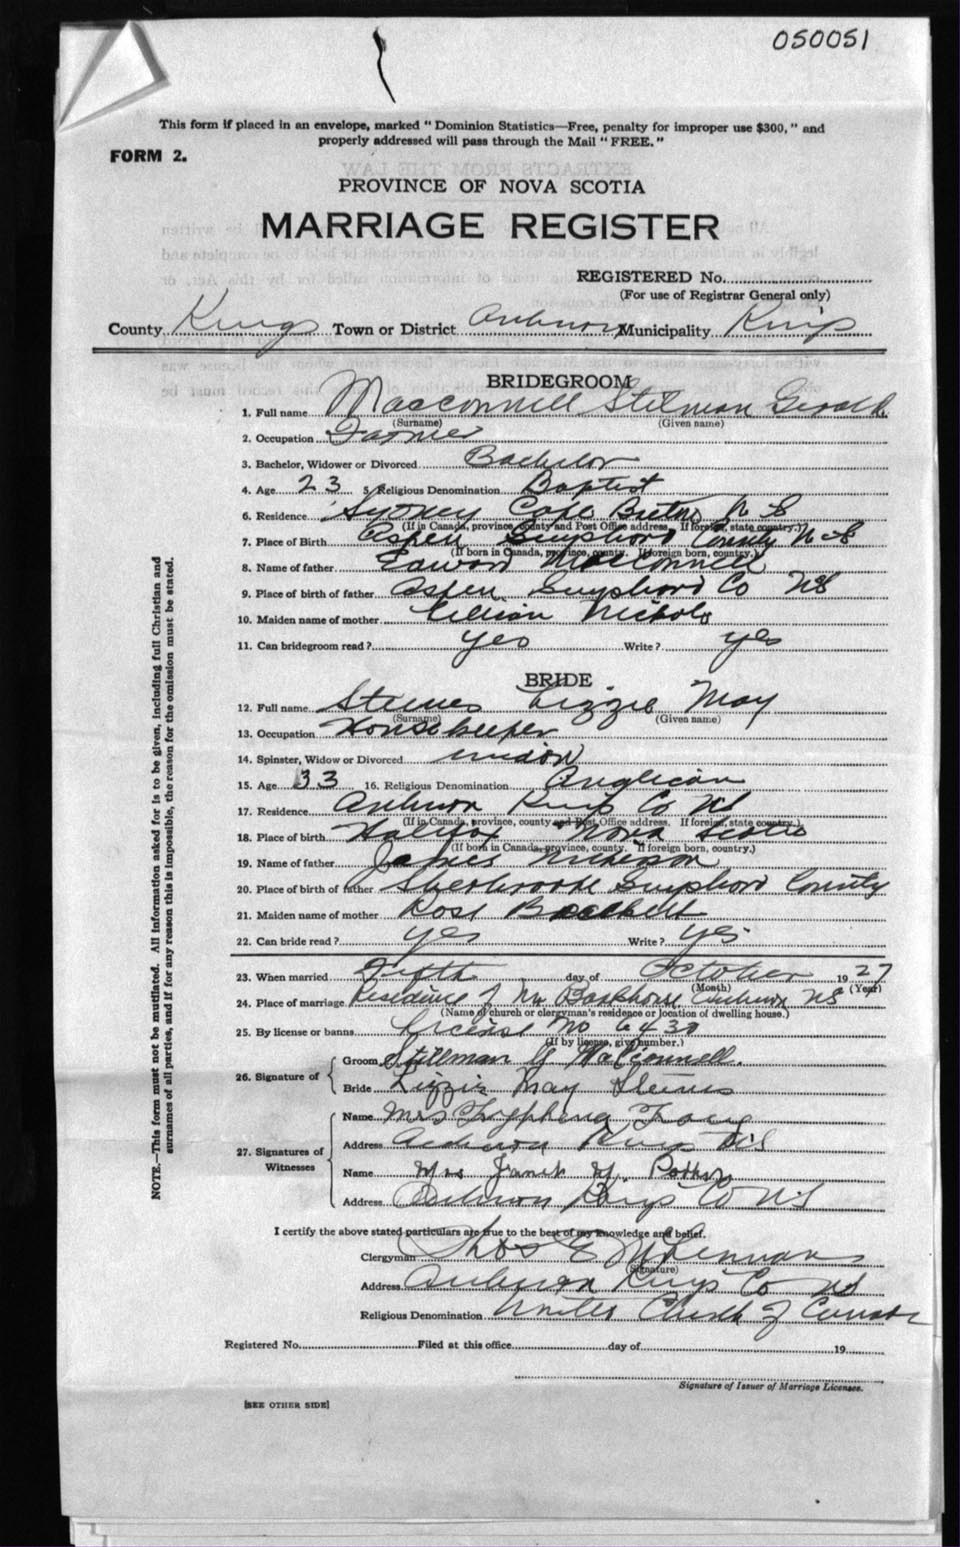 050051
This form if placed in an envelope, marked "Dominion Statistics—Free, penalty for improper use $300," and
properly addressed will pass through the Mail "FREE."
FORM 2.
PROVINCE OF NOVA SCOTIA
MARRIAGE REGISTER
REGISTERED No.
(For use of Registrar General only)
County Kings Town or District Auburn Municipality Kings
BRIDEGROOM
1. Full name MacConnell Stilman Gerald
(Surname) (Given name)
2. Occupation Farmer
3. Bachelor, Widower or Divorced Bachelor
4. Age 23 5. Religious Denomination Baptist
6. Residence Sydney Cape Breton N S
(If in Canada, province, county and Post Office address. If foreign, state country.)
7. Place of Birth Aspen Guysboro County N S
(If born in Canada, province, county. If foreign born, country.)
8. Name of father Edward MacConnell
9. Place of birth of father Aspen Guysboro Co NS
10. Maiden name of mother Lillian Nichols
11. Can bridegroom read? yes Write? yes
BRIDE
12. Full name Steeves Lizzie May
(Surname) (Given name)
13. Occupation Housekeeper
14. Spinster, Widow or Divorced widow
15. Age 33 16. Religious Denomination Anglican
17. Residence Auburn Kings Co NS
(If in Canada, province, county and Post Office address. If foreign, state country.)
18. Place of birth Halifax Nova Scotia
(If born in Canada, province, county. If foreign born, country.)
19. Name of father James
20. Place of birth of father Sherbrooke Guysboro County
21. Maiden name of mother Rose
22. Can bride read? yes Write? yes
23. When married Fifth day of October 1927
(Month) (Year)
24. Place of marriage Residence of Mr Auburn NS
(Name of church or clergyman's residence or location of dwelling house.)
25. By license or banns License No 6430
(If by license, give number.)
26. Signature of
Groom Stillman G MacConnell.
Bride Lizzie May Steeves
27. Signatures of Witnesses
Name Mrs Tryphena
Address Auburn Kings NS
Name Mrs Janet
Address Auburn Kings Co NS
I certify the above stated particulars are true to the best of my knowledge and belief.
Clergyman Thos E
(Signature)
Address Auburn Kings Co NS
Religious Denomination United Church of Canada
Registered No. Filed at this office day of 19
Signature of Issuer of Marriage Licenses.
[SEE OTHER SIDE]
NOTE.—This form must not be mutilated. All information asked for is to be given, including full Christian and
surnames of all parties, and if for any reason this is impossible, the reason for the omission must be stated.